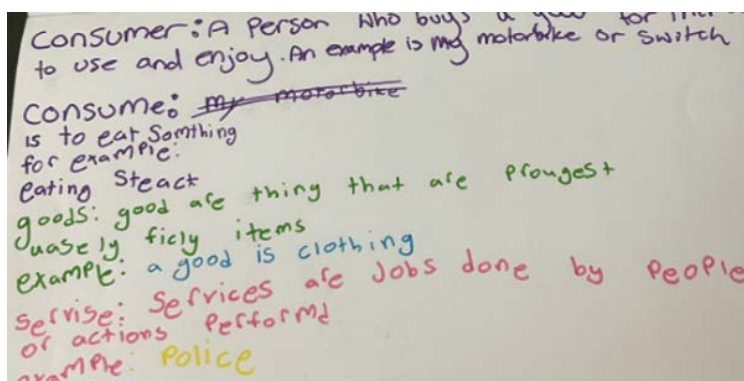 Consumer: A Person who buys a good for
to use and enjoy. An example is my motorbike or switch
Consume: my motorbike
is to eat Somthing
for example:
eating Steack
goods: good are thing that are prougest
uasely ficly items
example: a good is clothing
Servise: Services are Jobs done by People
or actions Performd
example: Police